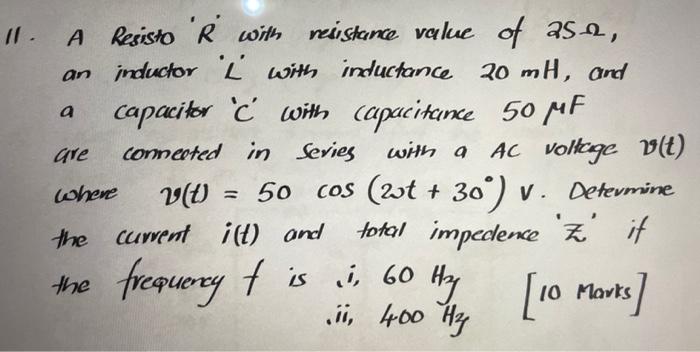 11. A Resisto 'R' with reistance value of 25Ω,
an inductor 'L' with inductance 20 mH, and
a capacitor 'C' with capacitance 50 μF
are connected in Series with a AC voltage v(t)
where v(t) = 50 cos (2ωt + 30°) v. Determine
the current i(t) and total impedence 'Z' if
the frequency f is .i, 60 Hz
.ii, 400 Hz [10 Marks]